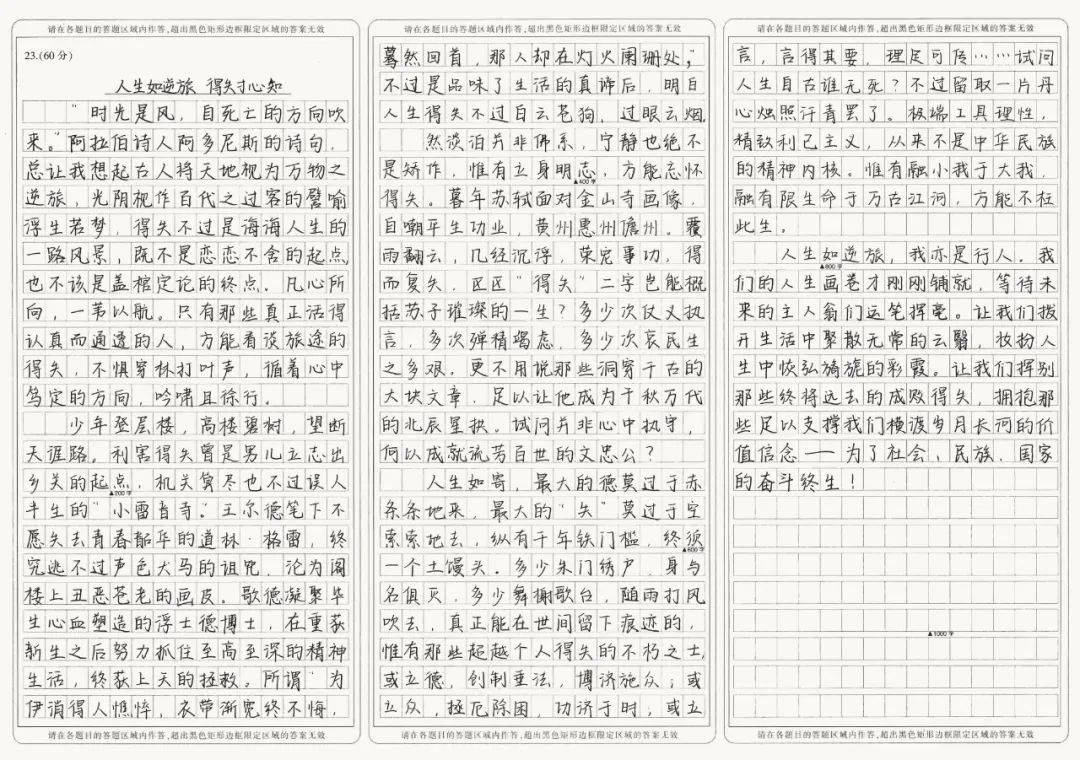 请在各题目的答题区域内作答,超出黑色矩形边框限定区域的答案无效
23.(60分)
人生如逆旅 得失寸心知
“时光是风,自死亡的方向吹
来。”阿拉伯诗人阿多尼斯的诗句,
总让我想起古人将天地视为万物之
逆旅,光阴视作百代之过客的譬喻
浮生若梦,得失不过是海海人生的
一路风景,既不是恋恋不舍的起点
也不该是盖棺定论的终点。凡心所
向,一苇以航。只有那些真正活得
认真而通透的人,方能看谈旅途的
得失,不惧穿林打叶声,循着心中
笃定的方向,吟啸且徐行。
少年登层楼,高楼碧树,望断
天涯路。利害得失曾是男儿立志出
乡关的起点,机关算尽也不过误人
▲200字
半生的“小雷音寺”。王尔德笔下不
愿失去青春韶华的道林·格雷,终
究逃不过声色犬马的诅咒,沦为阁
楼上丑恶苍老的画皮。歌德凝聚毕
生心血塑造的浮士德博士,在重获
新生之后努力抓住至高至深的精神
生活,终获上天的拯救。所谓“为
伊消得人憔悴,衣带渐宽终不悔,
请在各题目的答题区域内作答,超出黑色矩形边框限定区域的答案无效
请在各题目的答题区域内作答,超出黑色矩形边框限定区域的答案无效
蓦然回首,那人却在灯火阑珊处”,
不过是品味了生活的真谛后,明白
人生得失不过白云苍狗,过眼云烟
然谈泊并非佛系,宁静也绝不
是矫作,惟有立身明志,方能忘怀
▲400字
得失。暮年苏轼面对金山寺画像,
自嘲平生功业,黄州惠州儋州。覆
雨翻云,几经沉浮,荣宠事功,得
而复失,区区“得失”二字岂能概
括苏子璀璨的一生?多少次仗义执
言,多次殚精竭虑,多少次哀民生
之多艰,更不用说那些洞穿千古的
大块文章,足以让他成为千秋万代
的北辰星拱。试问并非心中执守,
何以成就流芳百世的文忠公?
人生如寄,最大的德莫过于赤
条条地来,最大的“失”莫过于空
索索地去,纵有千年铁门槛,终须
▲600字
一个土馒头。多少朱门绣户,身与
名俱灭,多少舞榭歌台,随雨打风
吹去,真正能在世间留下痕迹的,
惟有那些超越个人得失的不朽之士,
或立德,创制垂法,博济施众;或
立众,拯厄除困,功济于时;或立
请在各题目的答题区域内作答,超出黑色矩形边框限定区域的答案无效
请在各题目的答题区域内作答,超出黑色矩形边框限定区域的答案无效
言,言得其要,理足可传……试问
人生自古谁无死?不过留取一片丹
心烛照汗青罢了。极端工具理性,
精致利己主义,从来不是中华民族
的精神内核。惟有融小我于大我,
融有限生命于万古江河,方能不枉
此生。
人生如逆旅,我亦是行人。我
▲800字
们的人生画卷才刚刚铺就,等待未
来的主人翁们运笔挥毫。让我们拨
开生活中聚散无常的云翳,妆扮人
生中恢弘旖旎的彩霞。让我们挥别
那些终将远去的成败得失,拥抱那
些足以支撑我们横渡岁月长河的价
值信念——为了社会、民族、国家
的奋斗终生!
▲1000字
请在各题目的答题区域内作答,超出黑色矩形边框限定区域的答案无效